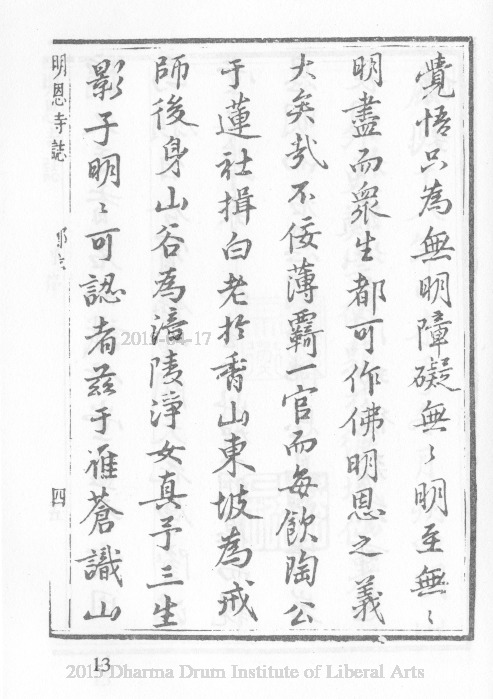 覺悟只為無明障礙無〻明至無〻
明盡而眾生都可作佛明恩之義
大矣哉不佞薄羈一官而每飲陶公
于蓮社揖白老於香山東坡為戒
師後身山谷為涪陵淨女真予三生
影子明〻可認者茲于雁蒼識山
明恩寺誌
四
13
2015-04-17
2015 Dharma Drum Institute of Liberal Arts